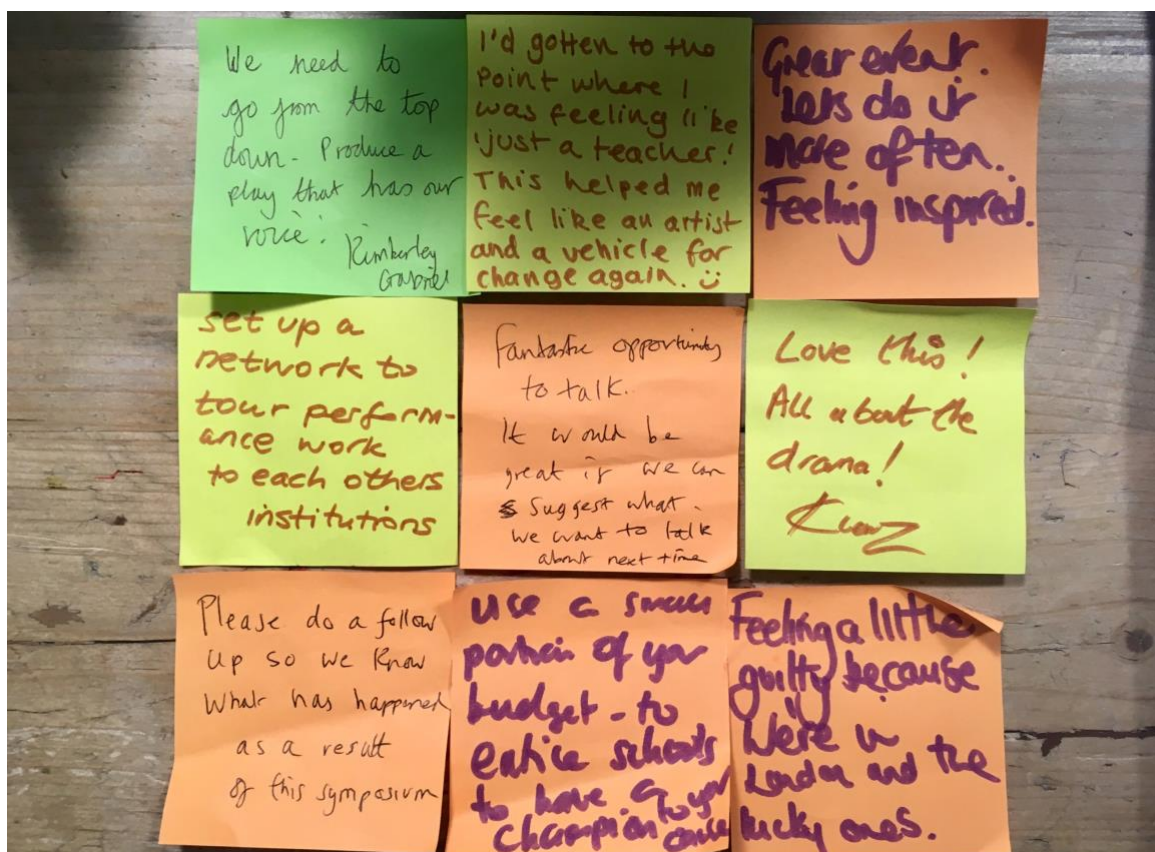 We need to
go from the top
down - Produce a
play that has our
voice.
Kimberley
Gabriel
I'd gotten to the
point where I
was feeling like
'just a teacher!'
This helped me
feel like an artist
and a vehicle for
change again. ü
Great event.
Lets do it
more often.
Feeling inspired.
set up a
network to
tour perform-
ance work
to each others
institutions
Fantastic opportunity
to talk.
It would be
great if we can
Suggest what
we want to talk
about next time
Love this!
All about the
drama!
Please do a follow
up so we know
what has happened
as a result
of this symposium
use a small
portion of your
budget - to
entice schools
to have a
champion to your
Feeling a little
guilty because
We're in
London and the
lucky ones.